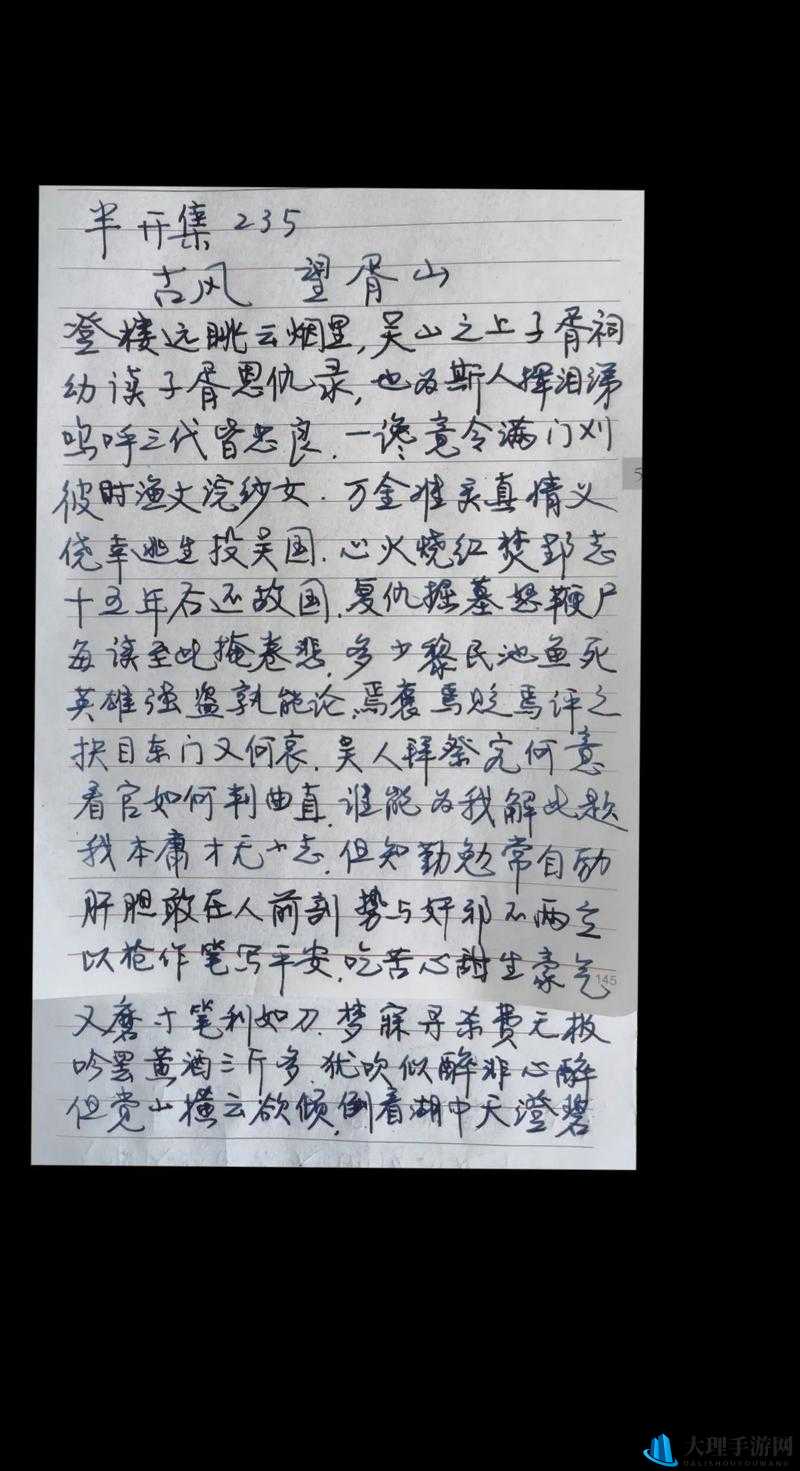 半开集 235
古风 望胥山
登楼远眺云烟里,吴山之上子胥祠
幼读子胥恩仇录,也为斯人挥泪涕
呜呼三代皆忠良.一谗竟令满门刈
彼时渔丈浣纱女.万金难买真情义
侥幸逃生投吴国.心火烧红焚郢志
十五年后还故国.复仇掘墓怒鞭尸
每读至此掩卷悲.多少黎民池鱼死
英雄强盗孰能论.焉褒焉贬焉评之
抉目东门又何哀.吴人拜祭究何意
看官如何判曲直.谁能为我解此题
我本庸才无大志.但知勤勉常自励
肝胆敢在人前剖 势与奸邪不两立
以枪作笔写平安.吃苦心甜生豪气
145
又磨寸笔利如刀.梦寐寻杀费无极
吟罢黄酒三斤多.犹吹似醉非心醉
但觉山横云欲倾.倒看湖中天澄碧
大理手游网
DALISHOUYOUWANG